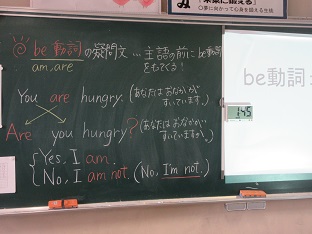 be動詞の疑問文…主語の前にbe動詞
am, are
をもってくる!
You are hungry. (あなたはおなかがすいています。)
Are you hungry? (あなたはおなかがすいていますか。)
Yes, I am.
No, I am not. (No, I'm not.)
be動詞
145